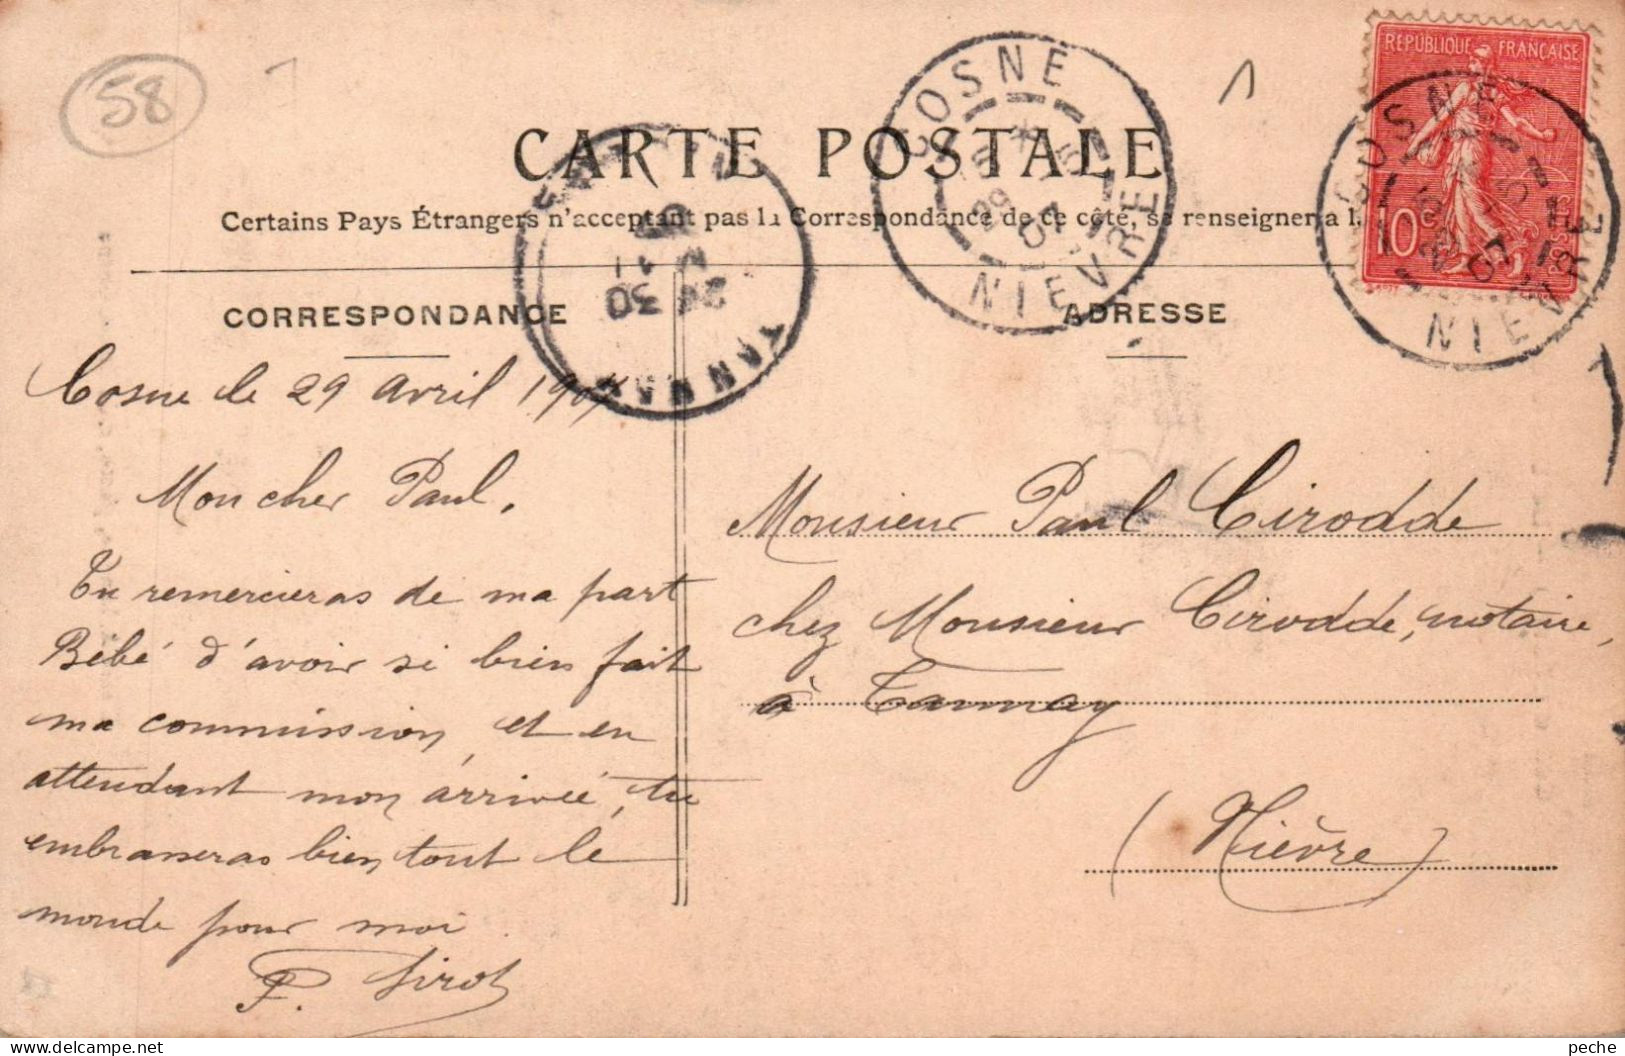 58
CARTE POSTALE
Certains Pays Étrangers n'acceptant pas la Correspondance de ce côté, se renseigner à l
CORRESPONDANCE
ADRESSE
RÉPUBLIQUE FRANÇAISE
10c
COSNE
NIEVRE
COSNE
NIEVRE
TANNAY
30
Cosne le 29 Avril 1907
Mon cher Paul,
Tu remercieras de ma part
Bébé d'avoir si bien fait
ma commission, et en
attendant mon arrivée, tu
embrasseras bien tout le
monde pour moi.
P. Sirot
Monsieur Paul Cirodde
chez Monsieur Cirodde, notaire,
à Tannay
(Nièvre)
peche